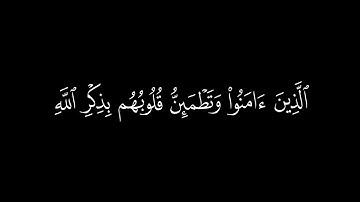 ٱلَّذِينَ ءَامَنُوا۟ وَتَطْمَئِنُّ قُلُوبُهُم بِذِكْرِ ٱللَّهِ